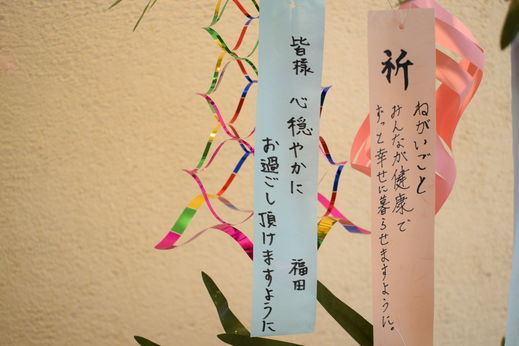 祈
ねがいごと
みんなが健康で
ずっと幸せに暮らせますように。
皆様 心穏やかに
お過ごし頂けますように
福田